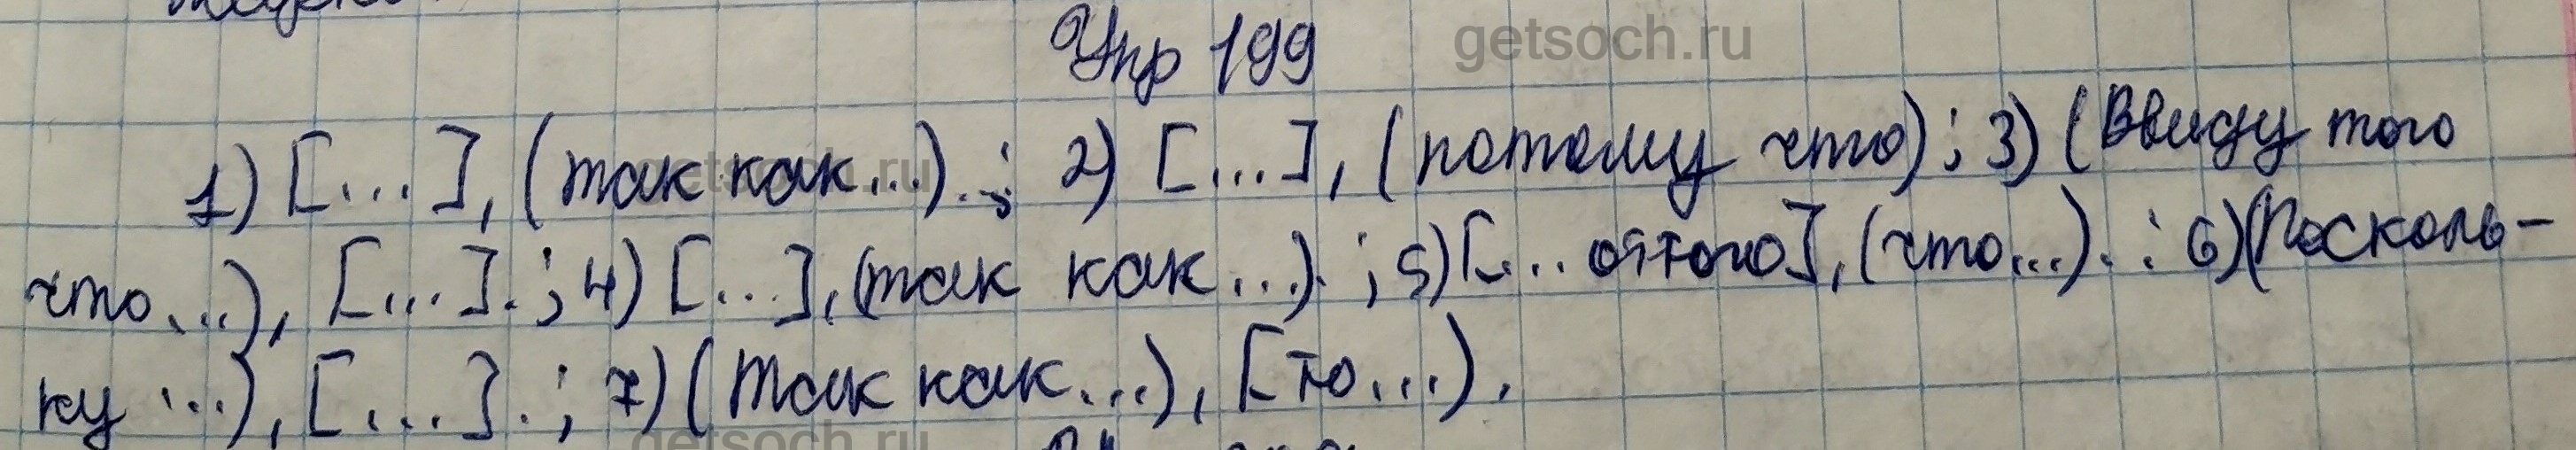 getsoch.ru
Упр 199
1) [...], (так как...).; 2) [...], (потому что); 3) (Ввиду того
getsoch.ru
что...), [...].; 4) [...], (так как...).; 5) [... оттого], (что...).; 6) (Посколь-
ку ...), [...].; 7) (Так как...), [то...).
getsoch.ru